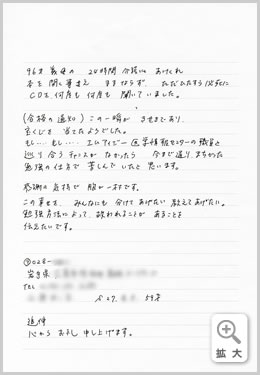 96才 義母の 24時間 介護に あけくれ
本を開く事さえ ままならず、ただひたすら 必死に
CDを 何度も 何度も 聞いていました。
(合格の通知) この一瞬が
宝くじを 当てたようでした。
もし… もし… エムアイシー 医学情報センターの 職員と
巡り合うチャンスが なかったら 今まで通り まちがった
勉強の仕方で 苦しんでいたと思います。
感謝の気持で 胸が一杯です。
この幸せを、みんなにも 分けてあげたい 教えてあげたい。
勉強方法によって、救われることが あることを
伝えたいです。
〒028-
岩手県
TEL
S27. 8. 59才
追伸
心から お礼 申し上げます。
拡大